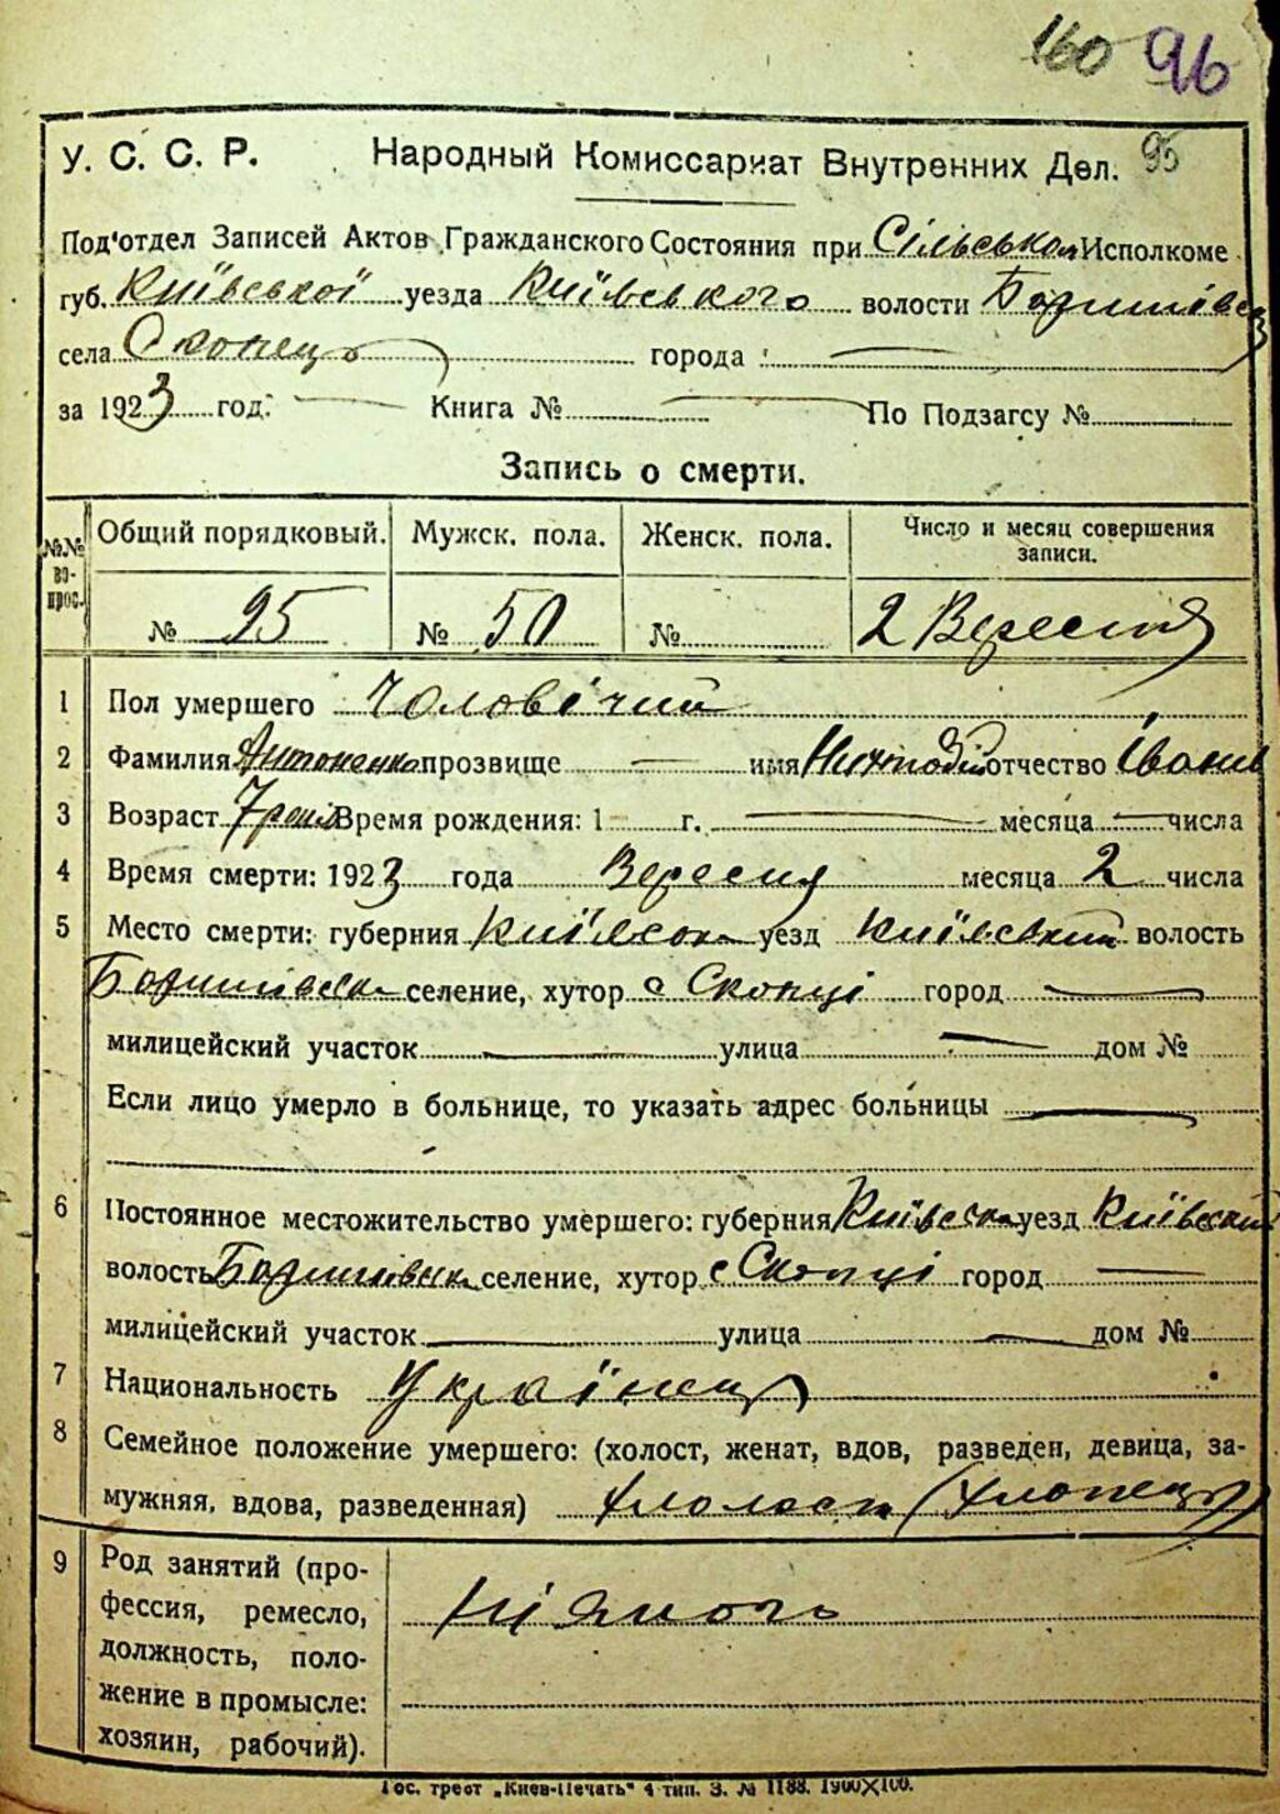 160 96
У. С. С. Р. Народный Комиссариат Внутренних Дел. 95
Под'отдел Записей Актов Гражданского Состояния при Сільськом Исполкоме
губ. Київської уезда Київського волости
села Скопець города
за 1923 год. Книга № По Подзагсу №
Запись о смерти.
№№ во-прос. Общий порядковый. Мужск. пола. Женск. пола. Число и месяц совершения записи.
№ 95 № 50 № 2 Вересня
1 Пол умершего Чоловічий
2 Фамилия Антоненко прозвище — имя отчество Іванів
3 Возраст 7 років Время рождения: 1 г. — месяца — числа
4 Время смерти: 1923 года Вересня месяца 2 числа
5 Место смерти: губерния Київська уезд Київський волость
селение, хутор с Скопці город —
милицейский участок — улица — дом №
Если лицо умерло в больнице, то указать адрес больницы —
6 Постоянное местожительство умершего: губерния Київська уезд Київський
волость селение, хутор с Скопці город —
милицейский участок — улица — дом №
7 Национальность Українець
8 Семейное положение умершего: (холост, женат, вдов, разведен, девица, за-
мужняя, вдова, разведенная) (хлопець)
9 Род занятий (про-
фессия, ремесло,
должность, поло-
жение в промысле:
хозяин, рабочий).
Гос. трест „Киев-Печать" 4 тип. З. № 1188. 1900×100.